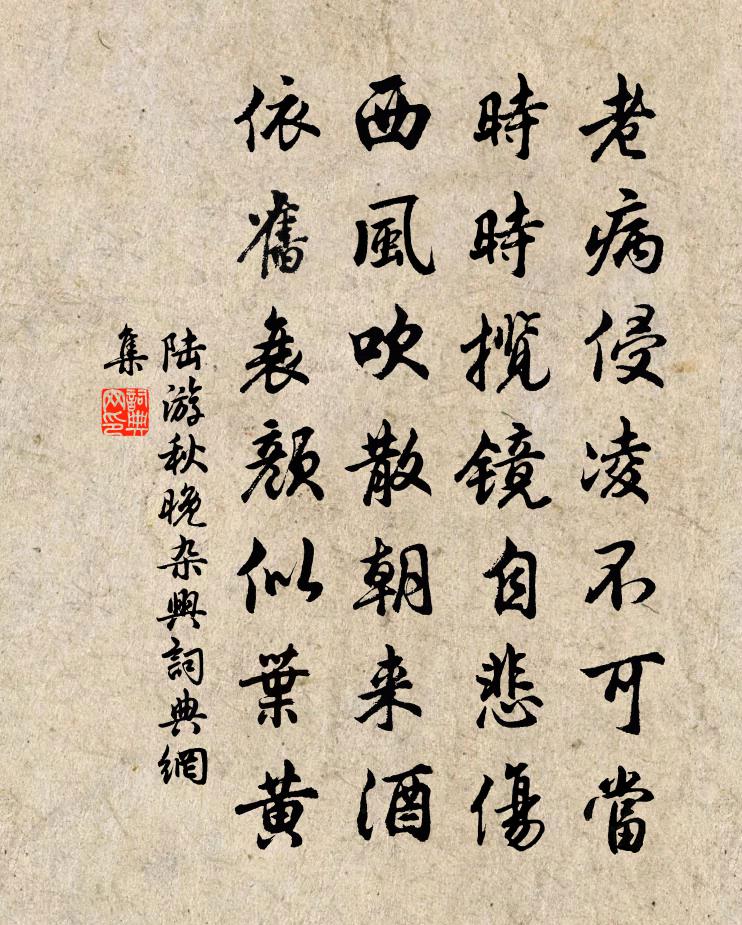 老病侵凌不可當
時時攬鏡自悲傷
西風吹散朝来酒
依舊衰顏似葉黃
陆游秋晚杂興詞典網
集
詞典
网印